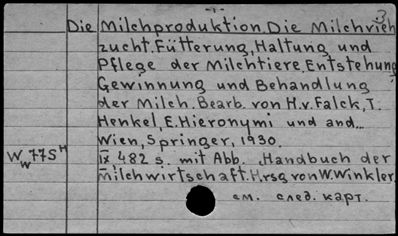 3
Die Milchproduktion. Die Milchvieh
zucht. Fütterung, Haltung und
Pflege der Milchtiere. Entstehung
Gewinnung und Behandlung
der Milch. Bearb. von H.v. Falck, T.
Henkel, E. Hieronymi und and...
Wien, Springer, 1930.
W W 77S H IX, 482 s. mit Abb. Handbuch der
Milchwirtschaft. Hrsg von W. Winkler.
см. след. карт.